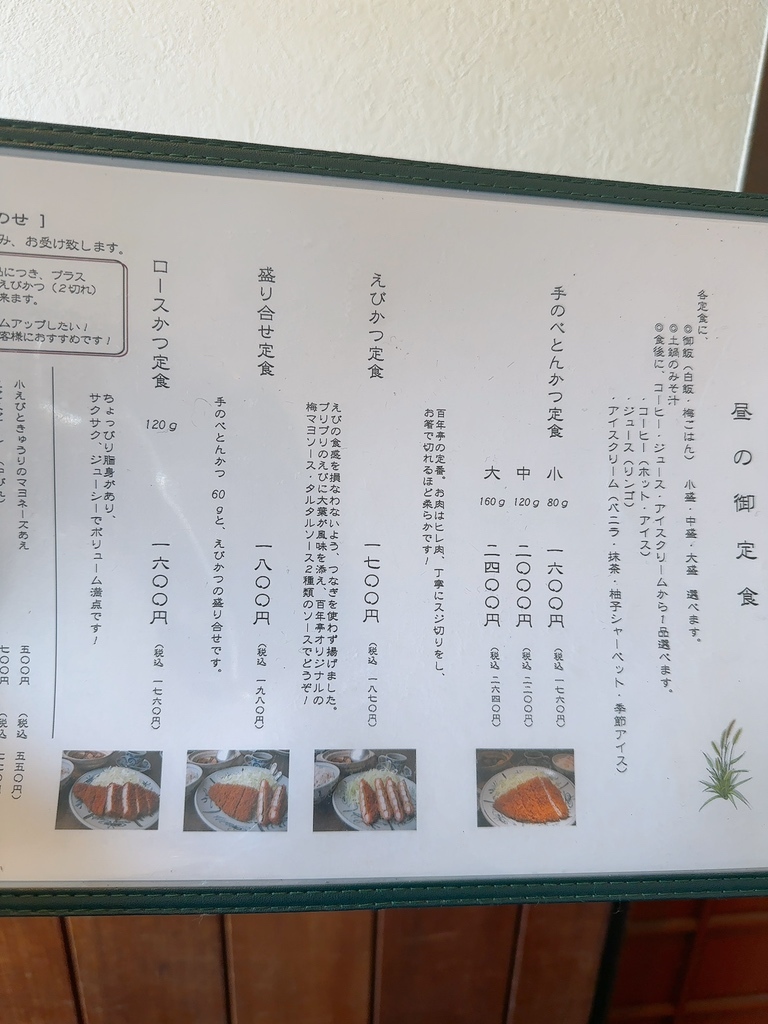 昼の御定食
各定食に、
◎御飯（白飯・梅ごはん）　小盛・中盛・大盛　選べます。
◎土鍋のみそ汁
◎食後に、コーヒー・ジュース・アイスクリームから1品選べます。
・コーヒー（ホット・アイス）
・ジュース（リンゴ）
・アイスクリーム（バニラ・抹茶・柚子シャーベット・季節アイス）
手のべとんかつ定食
小　80g　一六〇〇円（税込　一七六〇円）
中　120g　二〇〇〇円（税込　二二〇〇円）
大　160g　二四〇〇円（税込　二六四〇円）
百年亭の定番。お肉はヒレ肉、丁寧にスジ切りをし、
お箸で切れるほど柔らかです！
えびかつ定食　一七〇〇円（税込　一八七〇円）
えびの食感を損なわないよう、つなぎを使わず揚げました。
プリプリのえびに大葉が風味を添え、百年亭オリジナルの
梅マヨソース・タルタルソース2種類のソースでどうぞ！
盛り合せ定食　一八〇〇円（税込　一九八〇円）
手のべとんかつ　60gと、えびかつの盛り合せです。
ロースかつ定食　120g　一六〇〇円（税込　一七六〇円）
ちょっぴり脂身があり、
サクサク、ジューシーでボリューム満点です！
のせ ]
み、お受け致します。
品につき、プラス
えびかつ（2切れ）
来ます。
ームアップしたい！
客様におすすめです！
小えびときゅうりのマヨネーズあえ　五〇〇円（税込　五五〇円）
七〇〇円（税込